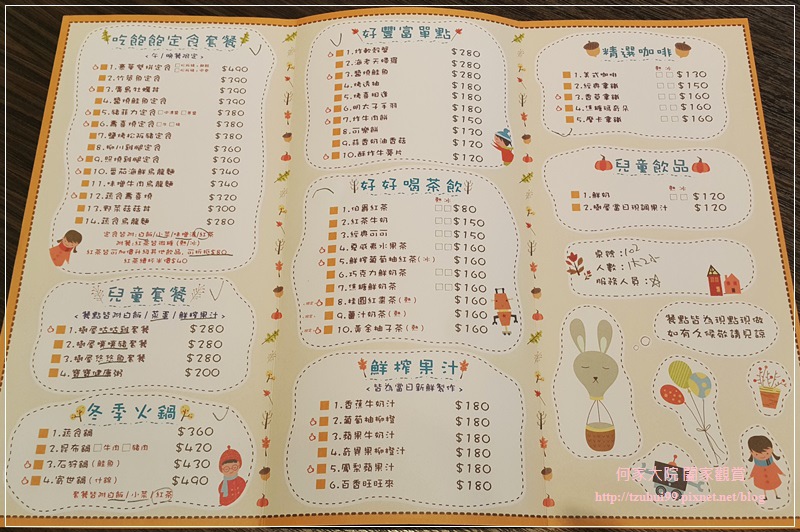 吃飽飽定食套餐
<午/晚餐限定>
$490
2.竹筴魚定食 $390
3.廣島牡蠣丼 $390
4.鹽燒鮭魚定食 $390
$380
6.壽喜燒定食 $380
7.鹽烤松阪豬定食 $380
8.柳川雞腿定食 $360
9.照燒雞腿定食 $360
10.番茄海鮮烏龍麵 $340
11.味噌牛肉烏龍麵 $340
12.蔬食壽喜燒 $320
13.野菜菇菇丼 $300
14.蔬食烏龍麵 $280
定食皆附:白飯/小菜/味噌湯/紅茶
附餐:紅茶皆微糖(熱/冰)
紅茶可加價升級其他飲品,可折抵$80
兒童套餐
餐點皆附白飯/蒸蛋/鮮榨果汁
1.樹屋咕咕雞套餐 $280
2.樹屋噴噴豬套餐 $280
3.樹屋悠悠魚套餐 $280
4.寶寶健康粥 $200
冬季火鍋
1.蔬食鍋 $360
2.昆布鍋 牛肉 豬肉 $420
3.石狩鍋(鮭魚) $430
4.富世鍋(什錦) $490
套餐皆附白飯/小菜/紅茶
好豐富單點
1.炸軟殼蟹 $280
2.海老天婦羅 $280
3.鹽燒鮭魚 $280
4.烤透抽 $180
5.烤喜相逢 $180
6.明太子手羽 $180
7.炸牛肉餅 $150
8.可樂餅 $130
9.蒜香奶油香菇 $120
10.酥炸牛蒡片 $120
好好喝茶飲
熱 冰
1.伯爵紅茶 $80
2.紅茶牛奶 $150
3.經典可可 $150
4.夏威夷水果茶 $160
5.鮮榨葡萄柚紅茶(冰) $160
6.巧克力鮮奶茶 $160
7.焦糖鮮奶茶 $160
8.桂圓紅棗茶(熱) $160
9.薑汁奶茶(熱) $160
10.黃金柚子茶(熱) $160
鮮榨果汁
<皆為當日新鮮製作>
1.香蕉牛奶汁 $180
2.葡萄柚柳橙 $180
3.蘋果牛奶汁 $180
4.奇異果柳橙汁 $180
5.鳳梨蘋果汁 $180
6.百香旺旺來 $180
精選咖啡
熱 冰
1.美式咖啡 $130
2.經典拿鐵 $150
3.香草拿鐵 $160
4.焦糖瑪奇朵 $160
5.摩卡拿鐵 $160
兒童飲品
熱 冰
1.鮮奶 $120
2.樹屋當日現調果汁 $120
桌號:102
人數:
服務人員:
餐點皆為現點現做
如有久候敬請見諒
何家大院 闔家觀賞
http://tzuhui99.pixnet.net/blog